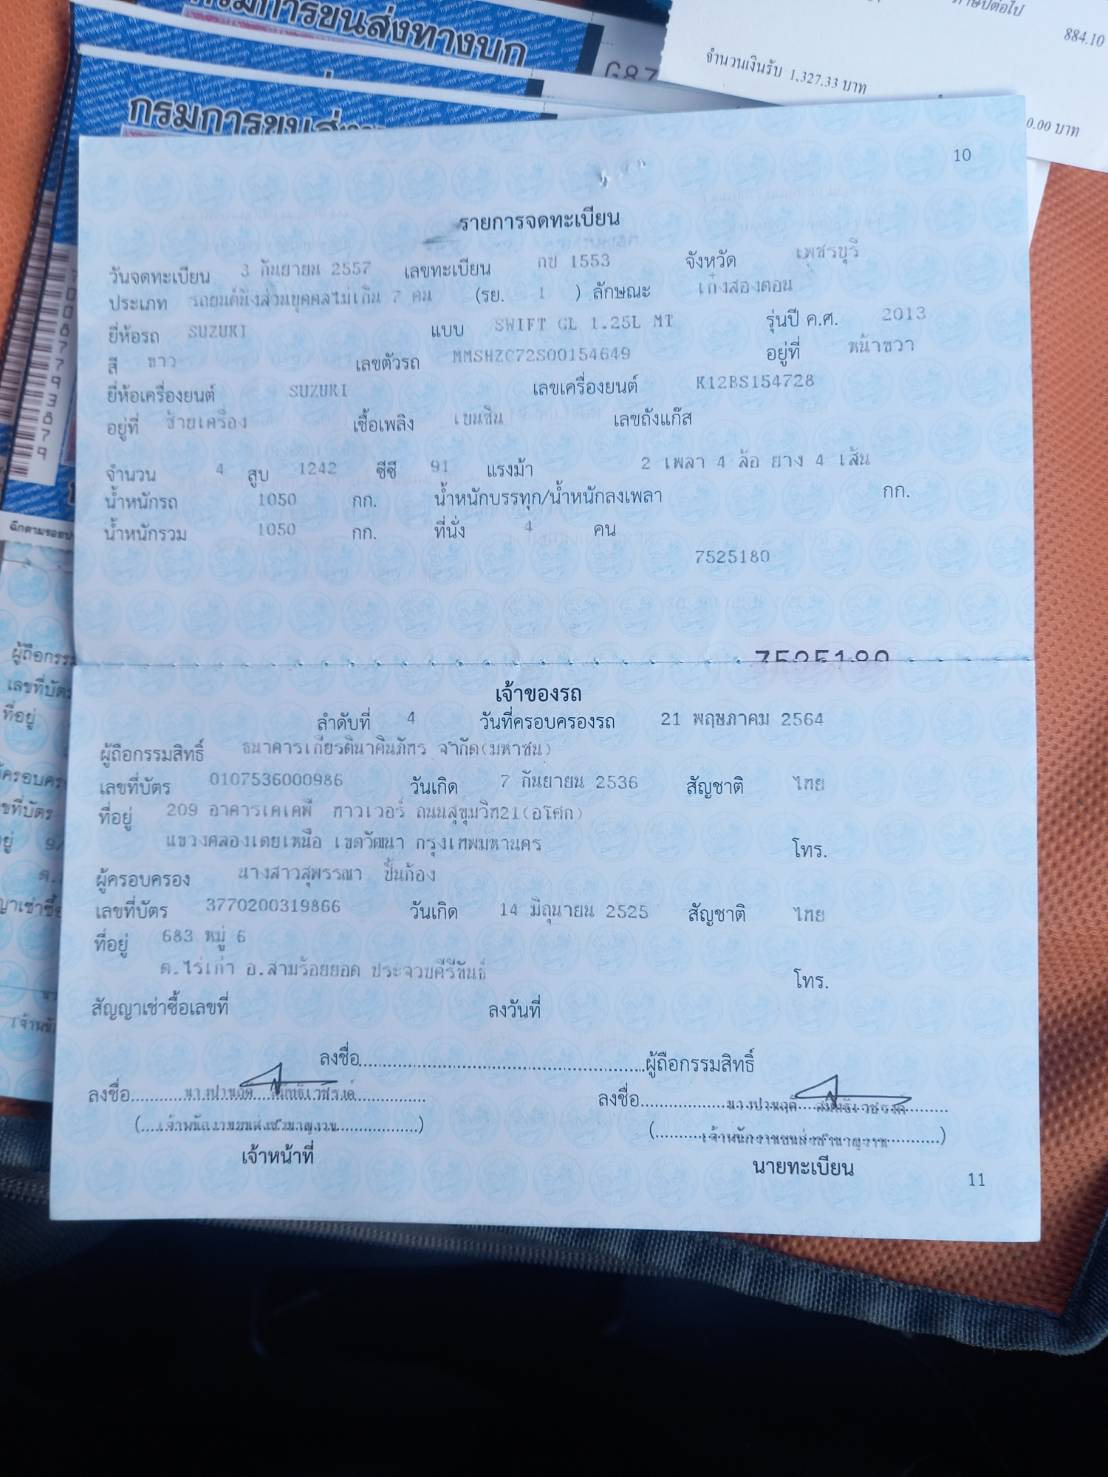 กรมการขนส่งทางบก
กรมการขนส่ง
G87
884.10
จำนวนเงินรับ 1,327.33 บาท
0.00 บาท
10
รายการจดทะเบียน
วันจดทะเบียน 3 กันยายน 2557 เลขทะเบียน กข 1553 จังหวัด เพชรบุรี
ประเภท รถยนต์นั่งส่วนบุคคลไม่เกิน 7 คน (รย. 1 ) ลักษณะ เก๋งสองตอน
ยี่ห้อรถ SUZUKI แบบ SWIFT GL 1.25L MT รุ่นปี ค.ศ. 2013
สี ขาว เลขตัวรถ MMSHZC72S00154649 อยู่ที่ หน้าขวา
ยี่ห้อเครื่องยนต์ SUZUKI เลขเครื่องยนต์ K12BS154728
อยู่ที่ ซ้ายเครื่อง เชื้อเพลิง เบนซิน เลขถังแก๊ส
จำนวน 4 สูบ 1242 ซีซี 91 แรงม้า 2 เพลา 4 ล้อ ยาง 4 เส้น
น้ำหนักรถ 1050 กก. น้ำหนักบรรทุก/น้ำหนักลงเพลา กก.
น้ำหนักรวม 1050 กก. ที่นั่ง 4 คน
7525180
7525180
เจ้าของรถ
ลำดับที่ 4 วันที่ครอบครองรถ 21 พฤษภาคม 2564
ผู้ถือกรรมสิทธิ์ ธนาคารเกียรตินาคินภัทร จำกัด(มหาชน)
เลขที่บัตร 0107536000986 วันเกิด 7 กันยายน 2536 สัญชาติ ไทย
ที่อยู่ 209 อาคารเคเคพี ทาวเวอร์ ถนนสุขุมวิท21(อโศก)
แขวงคลองเตยเหนือ เขตวัฒนา กรุงเทพมหานคร โทร.
ผู้ครอบครอง นางสาวสุพรรณา ปั้นก้อง
เลขที่บัตร 3770200319866 วันเกิด 14 มิถุนายน 2525 สัญชาติ ไทย
ที่อยู่ 683 หมู่ 6
ต.ไร่เก่า อ.สามร้อยยอด ประจวบคีรีขันธ์ โทร.
สัญญาเช่าซื้อเลขที่ ลงวันที่
ลงชื่อ............................................ผู้ถือกรรมสิทธิ์
ลงชื่อ ลงชื่อ
(....เจ้าพนักงานขนส่งชำนาญงาน....) (....เจ้าพนักงานขนส่งชำนาญงาน....)
เจ้าหน้าที่ นายทะเบียน
11